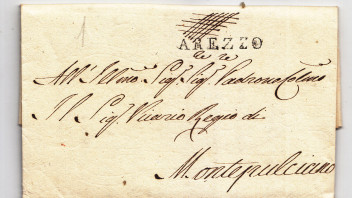 1
AREZZO
All' Illmo Sigr. Sigr. Padrone Colmo
Il Sigr. Vicario Regio di
Montepulciano